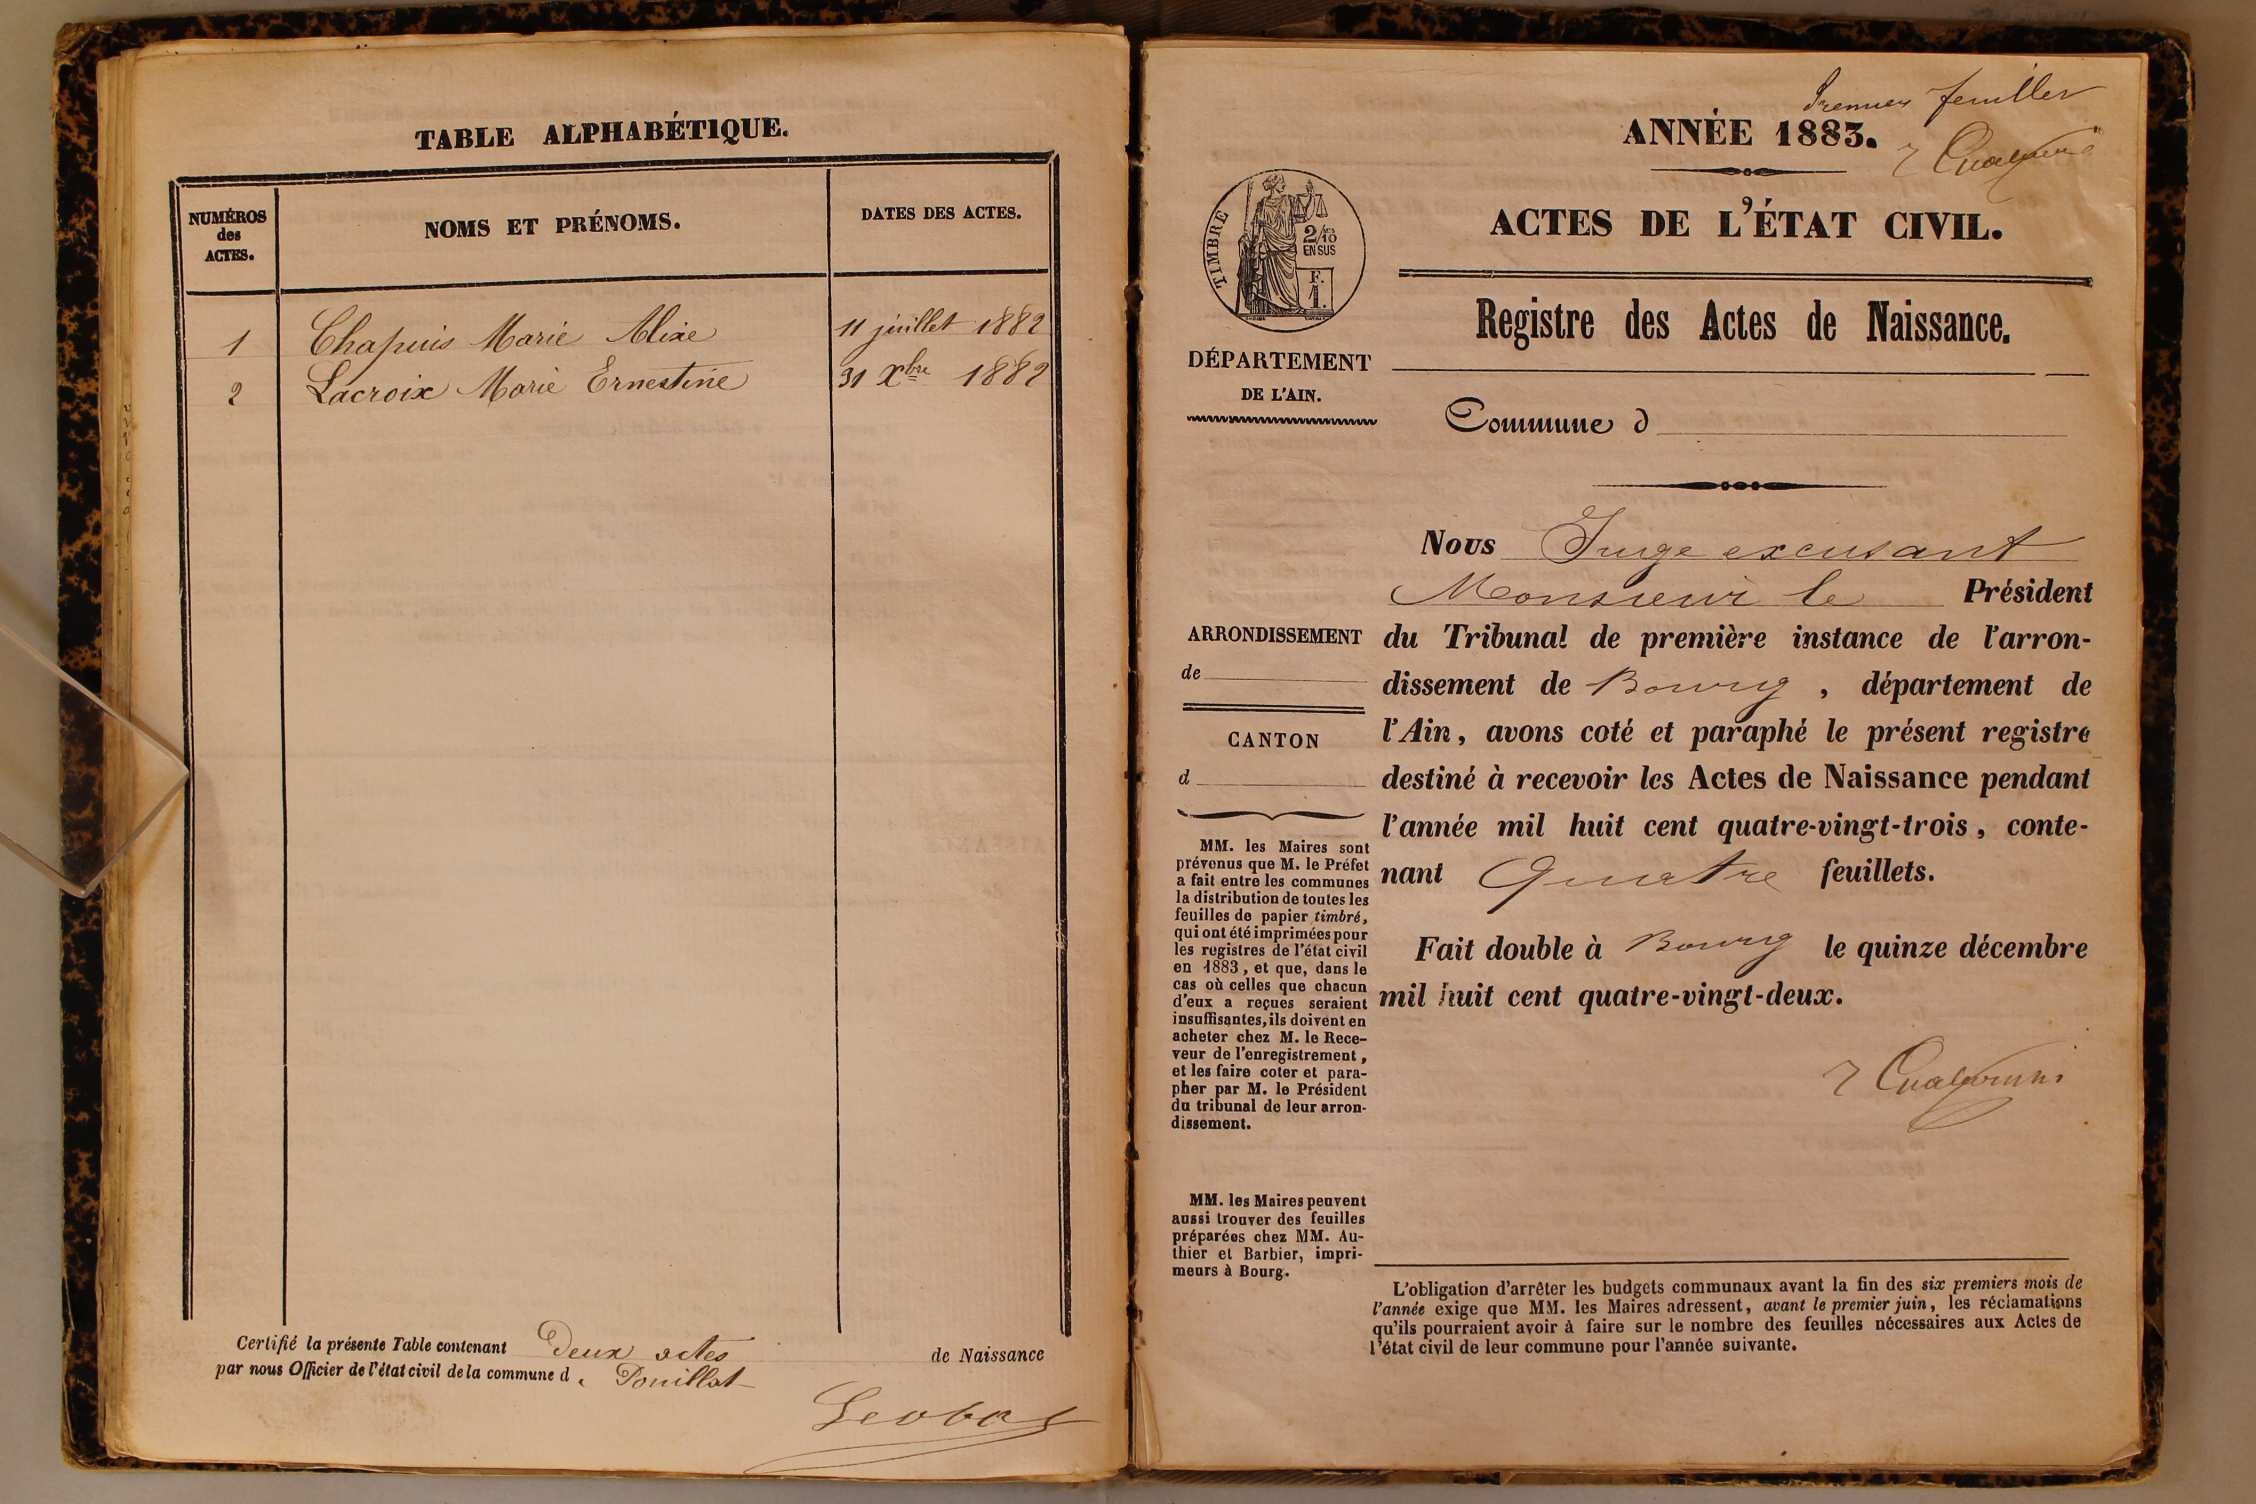 TABLE ALPHABÉTIQUE.
NUMÉROS
des
ACTES.
NOMS ET PRÉNOMS.
DATES DES ACTES.
1 Chapuis Marie Alixe 11 juillet 1882
2 Lacroix Marie Ernestine 31 Xbre 1882
Certifié la présente Table contenant Deux actes de Naissance
par nous Officier de l'état civil de la commune de Pouillat
Premier feuillet
ANNÉE 1883.
ACTES DE L'ÉTAT CIVIL.
TIMBRE
2/10
EN SUS
F.
1.
Registre des Actes de Naissance.
DÉPARTEMENT
DE L'AIN.
Commune d
Nous Juge excusant
Monsieur le Président
du Tribunal de première instance de l'arron-
dissement de Bourg, département de
l'Ain, avons coté et paraphé le présent registre
destiné à recevoir les Actes de Naissance pendant
l'année mil huit cent quatre-vingt-trois, conte-
nant Quatre feuillets.
Fait double à Bourg le quinze décembre
mil huit cent quatre-vingt-deux.
ARRONDISSEMENT
de
CANTON
d
MM. les Maires sont
prévenus que M. le Préfet
a fait entre les communes
la distribution de toutes les
feuilles de papier timbré,
qui ont été imprimées pour
les registres de l'état civil
en 1883, et que, dans le
cas où celles que chacun
d'eux a reçues seraient
insuffisantes, ils doivent en
acheter chez M. le Rece-
veur de l'enregistrement,
et les faire coter et para-
pher par M. le Président
du tribunal de leur arron-
dissement.
MM. les Maires peuvent
aussi trouver des feuilles
préparées chez MM. Au-
thier et Barbier, impri-
meurs à Bourg.
L'obligation d'arrêter les budgets communaux avant la fin des six premiers mois de
l'année exige que MM. les Maires adressent, avant le premier juin, les réclamations
qu'ils pourraient avoir à faire sur le nombre des feuilles nécessaires aux Actes de
l'état civil de leur commune pour l'année suivante.